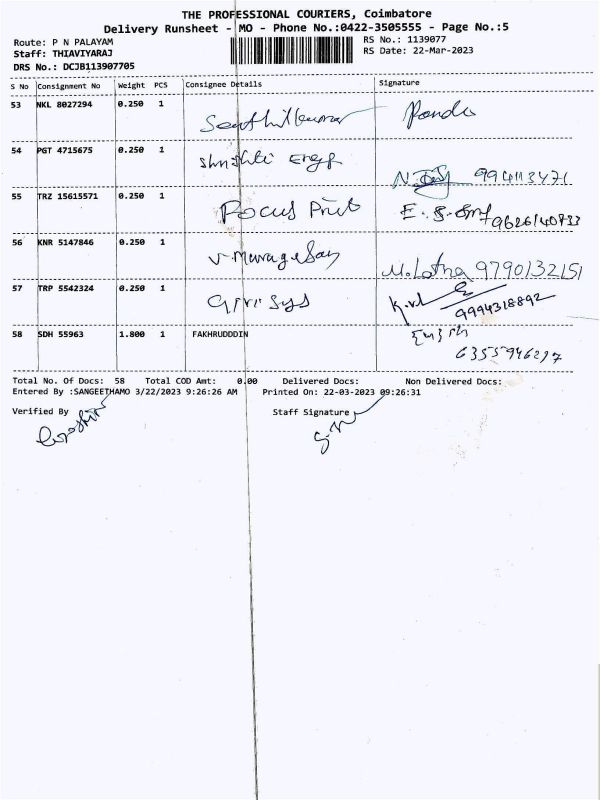 THE PROFESSIONAL COURIERS, Coimbatore
Delivery Runsheet - MO - Phone No.:0422-3505555 - Page No.:5
Route: P N PALAYAM
RS No.: 1139077
Staff: THIAVIYARAJ
RS Date: 22-Mar-2023
DRS No.: DCJB113907705
S No Consignment No Weight PCS Consignee Details Signature
53 NKL 8027294 0.250 1 Senthilkumar
54 PGT 4715675 0.250 1 Shrishti Engg
55 TRZ 15615571 0.250 1 Focus Print 9626140733
56 KNR 5147846 0.250 1 V. Murugesan M. Latha 9790132151
57 TRP 5542324 0.250 1 9994318892
58 SDH 55963 1.800 1 FAKHRUDDDIN
Total No. Of Docs: 58 Total COD Amt: 0.00 Delivered Docs: Non Delivered Docs:
Entered By :SANGEETHAMO 3/22/2023 9:26:26 AM Printed On: 22-03-2023 09:26:31
Verified By Staff Signature